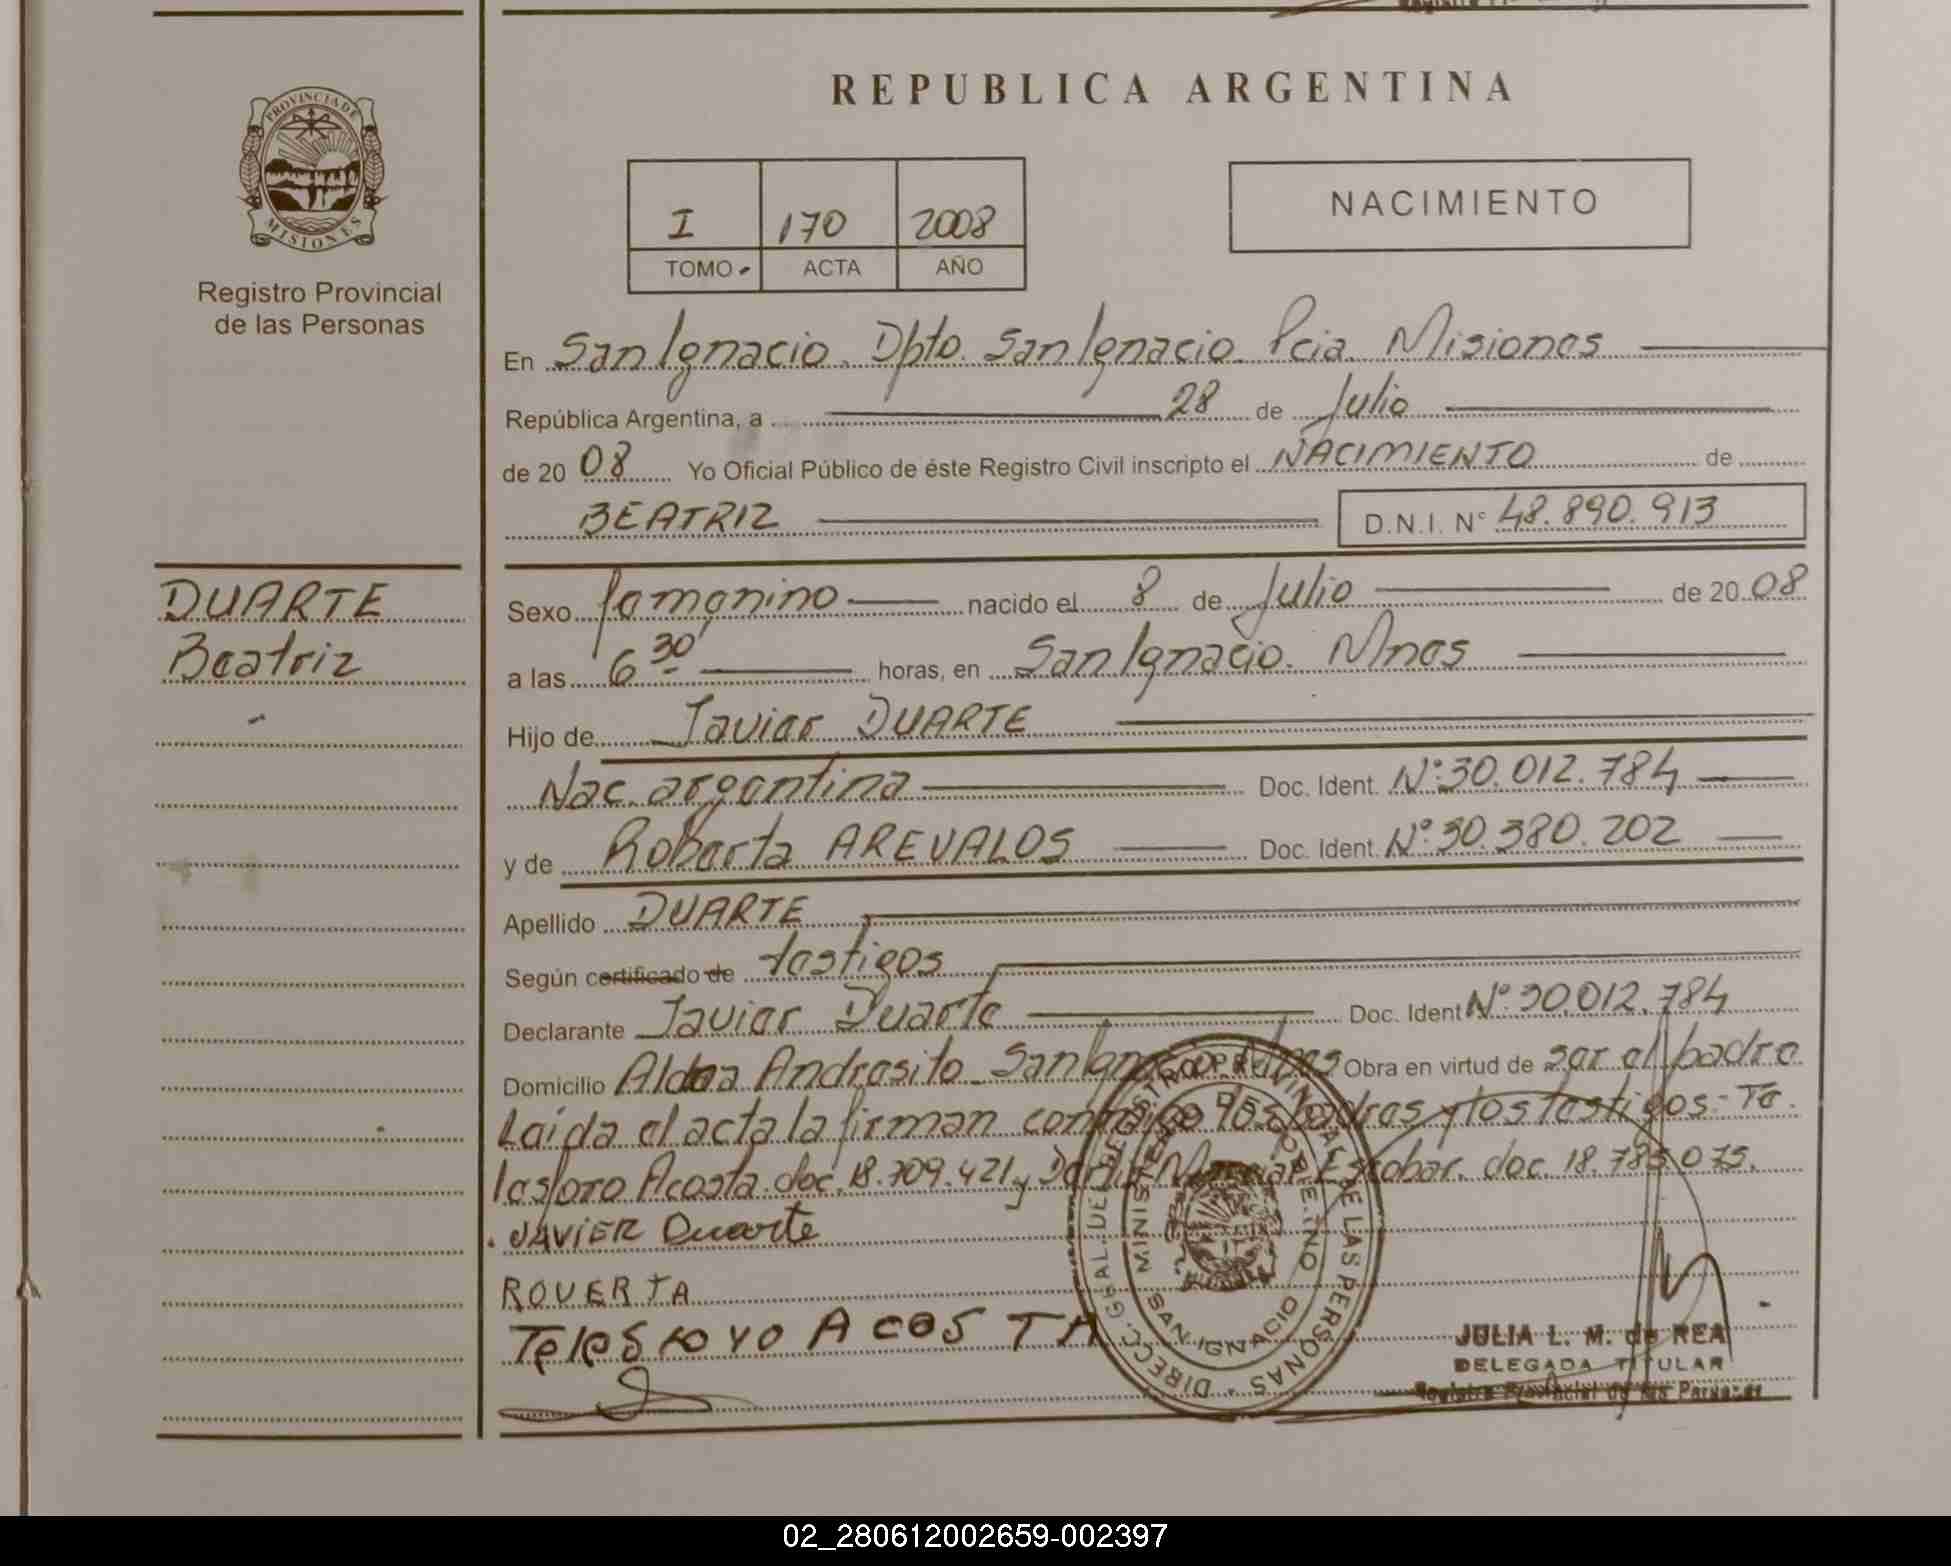 REPUBLICA ARGENTINA
PROVINCIA DE
MISIONES
Registro Provincial
de las Personas
I 170 2008
TOMO ACTA AÑO
NACIMIENTO
En San Ignacio. Dpto. San Ignacio. Pcia. Misiones
República Argentina, a 28 de Julio
de 20 08 Yo Oficial Público de éste Registro Civil inscripto el NACIMIENTO de
BEATRIZ D.N.I. N° 48.890.913
DUARTE
Beatriz
Sexo femenino nacido el 8 de Julio de 20 08
a las 6 30' horas, en San Ignacio. Mnes
Hijo de Javier DUARTE
Nac. argentina Doc. Ident. N°:30.012.784
y de Roberta AREVALOS Doc. Ident. N°:30.380.202
Apellido DUARTE
Según certificado de testigos
Declarante Javier Duarte Doc. Ident N°:30.012.784
Domicilio Aldea Andresito. San Ignacio Mnes Obra en virtud de ser el padre.
Leída el acta la firman conmigo los padres y los testigos: Te.
lesforo Acosta. doc. 18.709.421 y Marcial Escobar. doc. 18.785.075.
JAVIER Duarte
ROVERTA
TelesFoYo ACOSTA
DIRECC. GRAL. DEL REGISTRO PROVINCIAL DE LAS PERSONAS
MINISTERIO DE GOBIERNO
SAN IGNACIO
JULIA L. M. de REA
DELEGADA TITULAR
Registro Provincial de las Personas
02_280612002659-002397